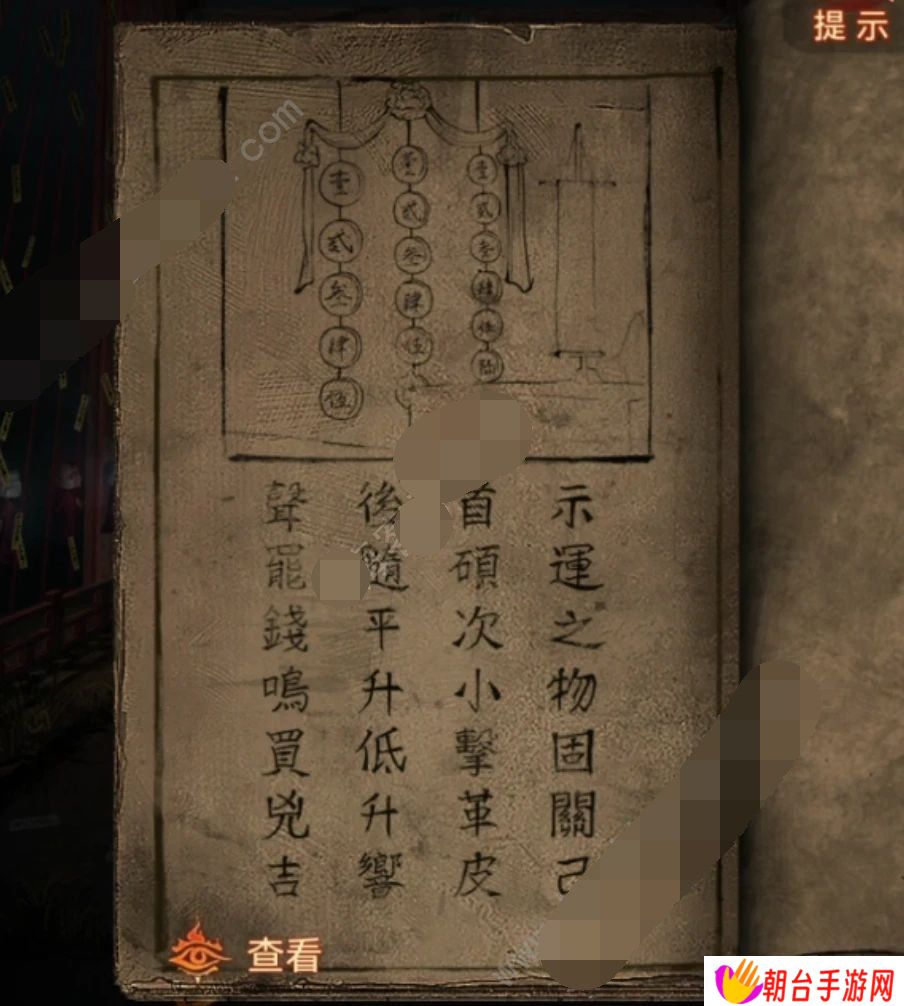 提示
壹 貳 叁 肆 伍
壹 貳 叁 肆 伍
壹 貳 叁 肆 伍 陆
示運之物固關己
首碩次小擊革皮
後隨平升低升響
聲罷錢鳴買兇吉
查看
.com
www.
朝台手游网